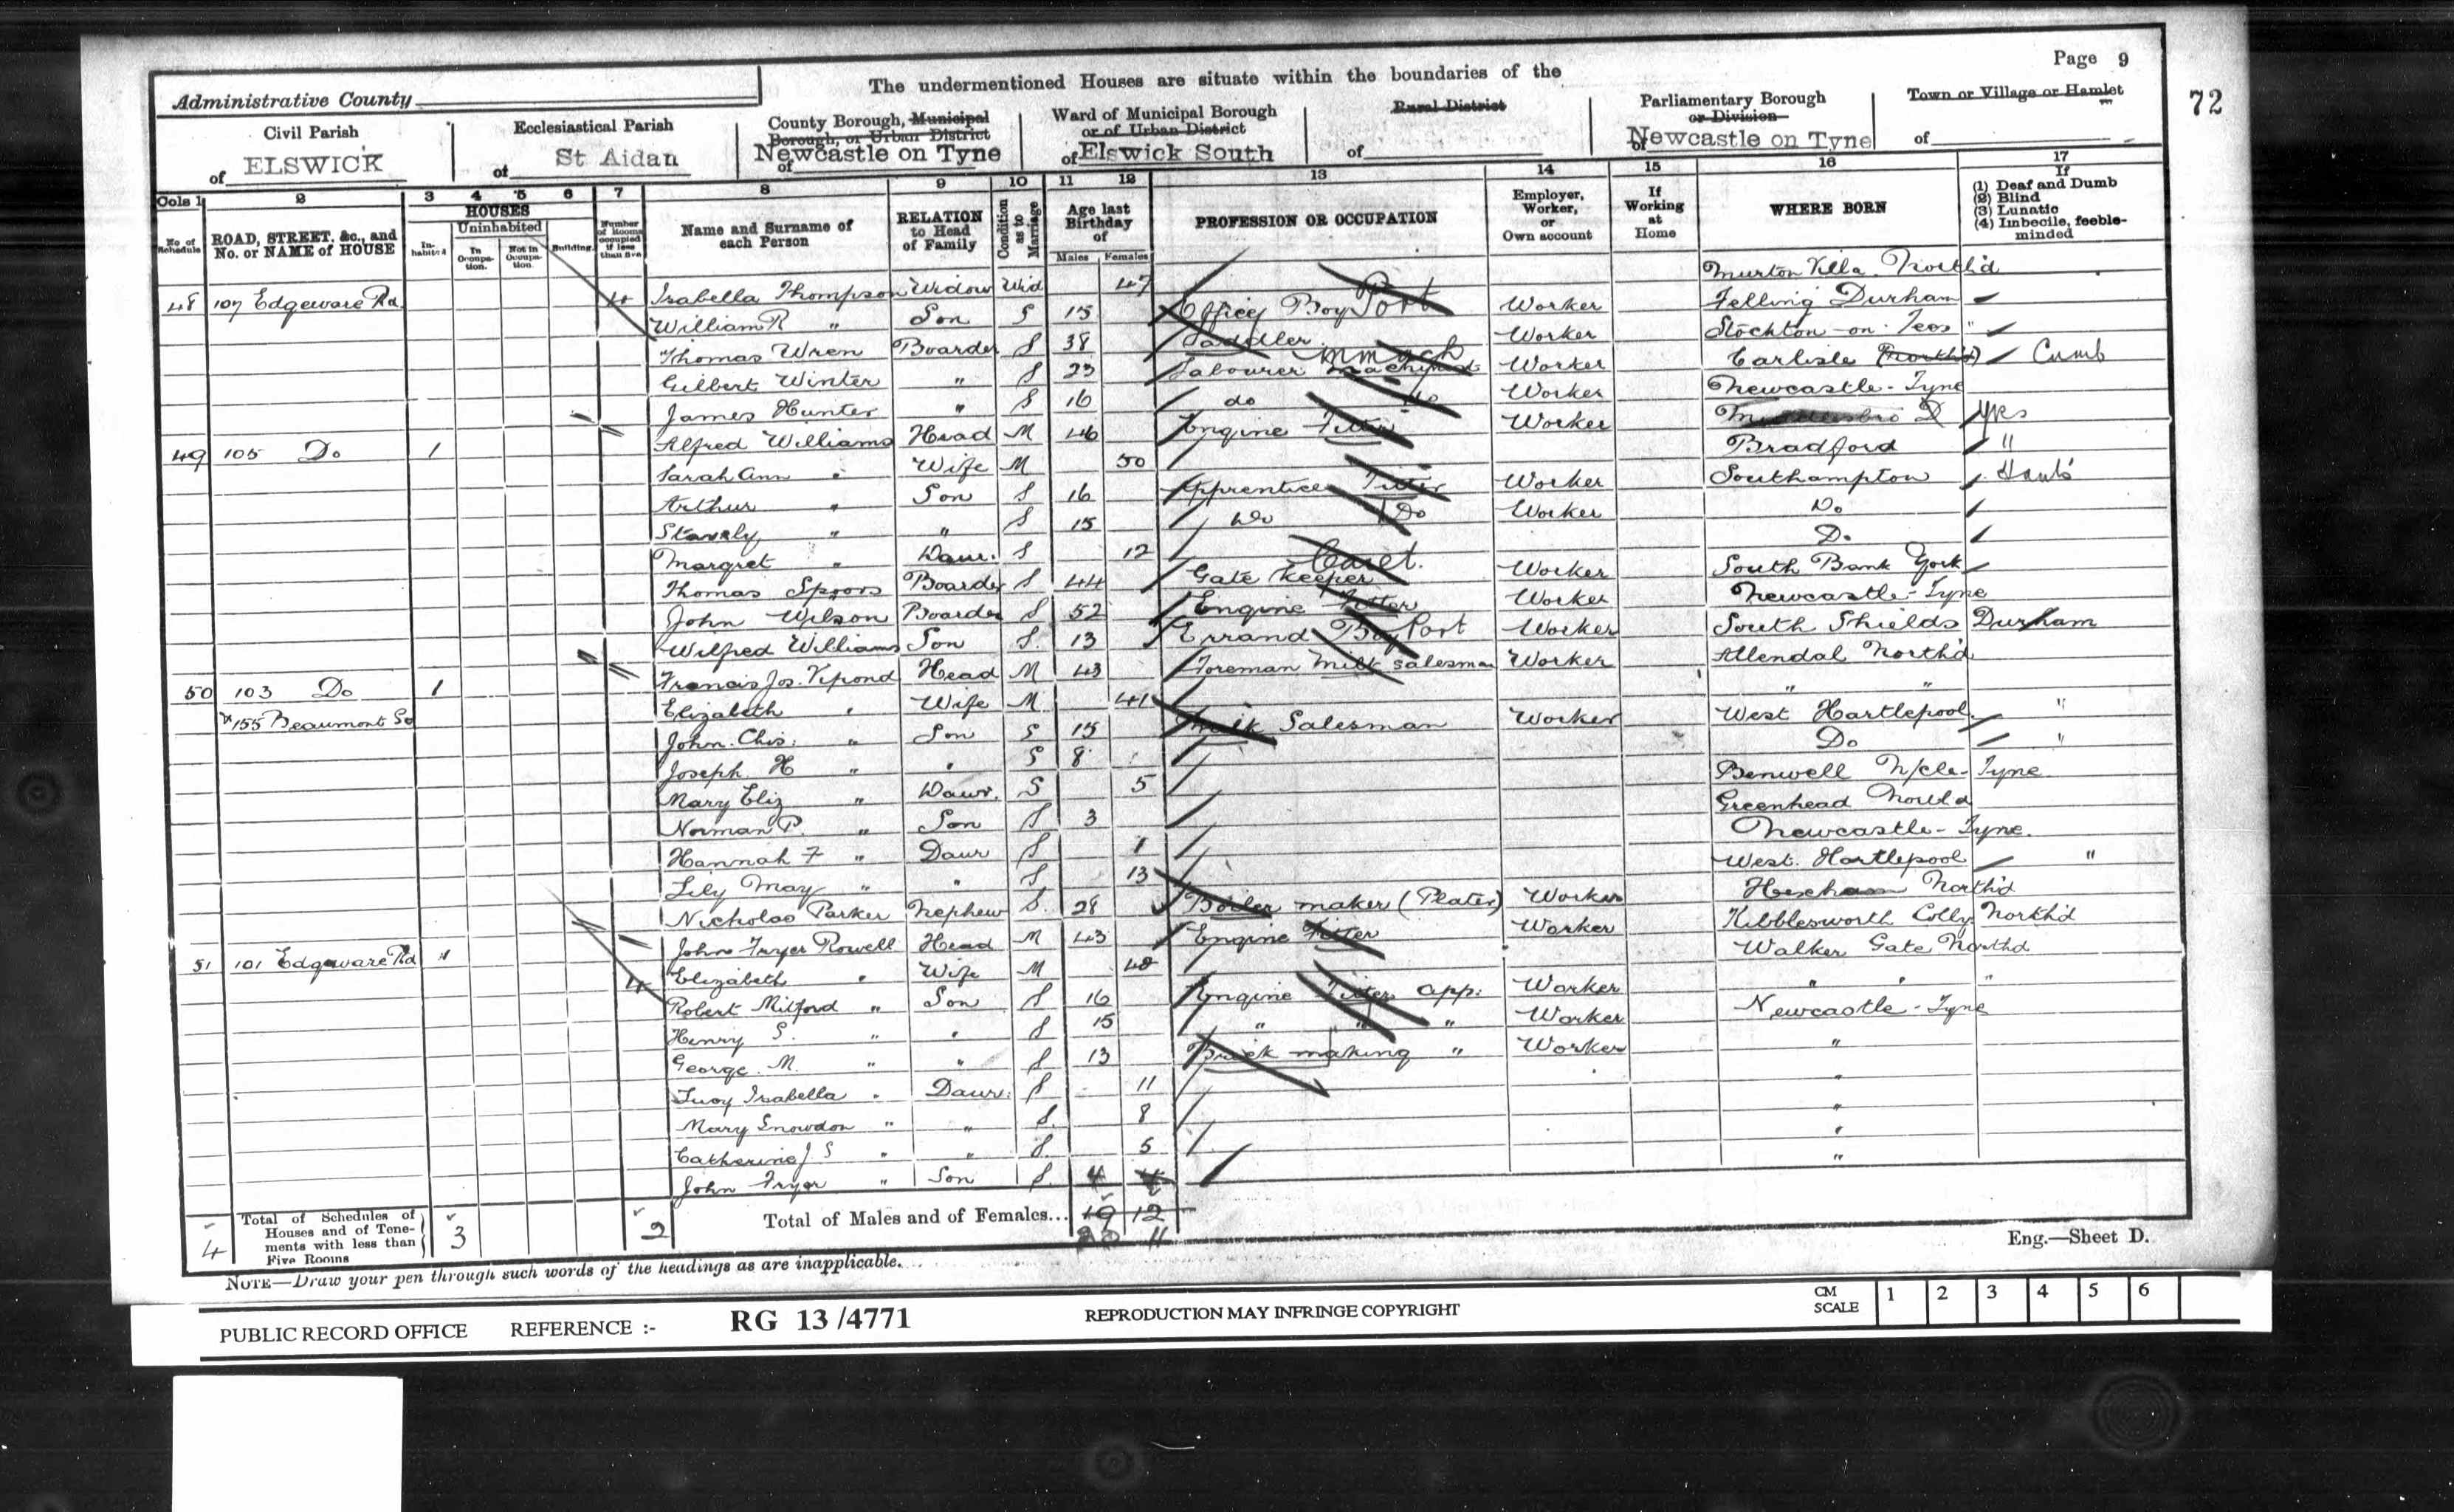 Page 9
The undermentioned Houses are situate within the boundaries of the
72
Administrative County
Civil Parish of ELSWICK
Ecclesiastical Parish of St Aidan
County Borough, Municipal Borough, or Urban District of Newcastle on Tyne
Ward of Municipal Borough or of Urban District of Elswick South
Rural District of
Parliamentary Borough or Division of Newcastle on Tyne
Town or Village or Hamlet of
Cols 1 2 3 4 5 6 7 8 9 10 11 12 13 14 15 16 17
No of Schedule
ROAD, STREET, &c., and No. or NAME of HOUSE
HOUSES
Inhabited
Uninhabited
In Occupation.
Not in Occupation.
Building.
Number of Rooms occupied if less than five
Name and Surname of each Person
RELATION to Head of Family
Condition as to Marriage
Age last Birthday of
Males Females
PROFESSION OR OCCUPATION
Employer, Worker, or Own account
If Working at Home
WHERE BORN
If
(1) Deaf and Dumb
(2) Blind
(3) Lunatic
(4) Imbecile, feeble-minded
48 107 Edgeware Rd 4 Isabella Thompson Widow Wid 47 Murton Villa North'd
William R " Son S 15 Office Boy Port Worker Felling Durham
Thomas Wren Boarder S 38 Saddler Worker Stockton-on-Tees "
Gilbert Winter " S 23 Labourer Machinist Worker Carlisle (North'd) Cumb
James Hunter " S 16 do do Worker Newcastle-Tyne
49 105 Do 1 Alfred Williams Head M 46 Engine Fitter Worker Yks
Sarah Ann " Wife M 50 Bradford "
Arthur " Son S 16 Apprentice Fitter Worker Southampton Hants
Stavely " " S 15 Do Do Worker Do
Margret " Daur. S 12 Do
Thomas Spoors Boarder S 44 Gate Keeper Caret. Worker South Bank York
John Wilson Boarder S 52 Engine Fitter Worker Newcastle-Tyne
Wilfred Williams Son S. 13 Errand Boy Port Worker South Shields Durham
50 103 Do 1 Francis Jos. Vipond Head M 43 Foreman Milk salesman Worker Allendal North'd
& 155 Beaumont St Elizabeth " Wife M 41 " "
John. Chis: " Son S 15 Milk Salesman Worker West Hartlepool "
Joseph H " " S 8 Do "
Mary Eliz " Daur. S 5 Benwell N/cle-Tyne
Norman P. " Son S 3 Greenhead North'd
Hannah F " Daur S 1 Newcastle-Tyne.
Lily May " " S 13 West. Hartlepool "
Nicholas Parker Nephew S. 28 Boiler maker (Plater) Worker Hexham North'd
51 101 Edgeware Rd 1 John Fryer Rowell Head M 43 Engine Fitter Worker Kibblesworth Colly North'd
4 Elizabeth " Wife M 40 Walker Gate North'd
Robert Milford " Son S 16 Engine Fitter app: Worker " " "
Henry S. " " S 15 " " " Worker Newcastle-Tyne
George. M. " " S 13 Brick making " Worker "
Lucy Isabella " Daur: S 11 "
Mary Snowdon " " S. 8 "
Catherine J. S " " S. 5 "
John Fryer " Son S. 4 "
4 Total of Schedules of Houses and of Tenements with less than Five Rooms 3 2 Total of Males and of Females... 19 12
20 11
Eng.—Sheet D.
NOTE—Draw your pen through such words of the headings as are inapplicable.
PUBLIC RECORD OFFICE REFERENCE :- RG 13/4771 REPRODUCTION MAY INFRINGE COPYRIGHT
CM SCALE 1 2 3 4 5 6